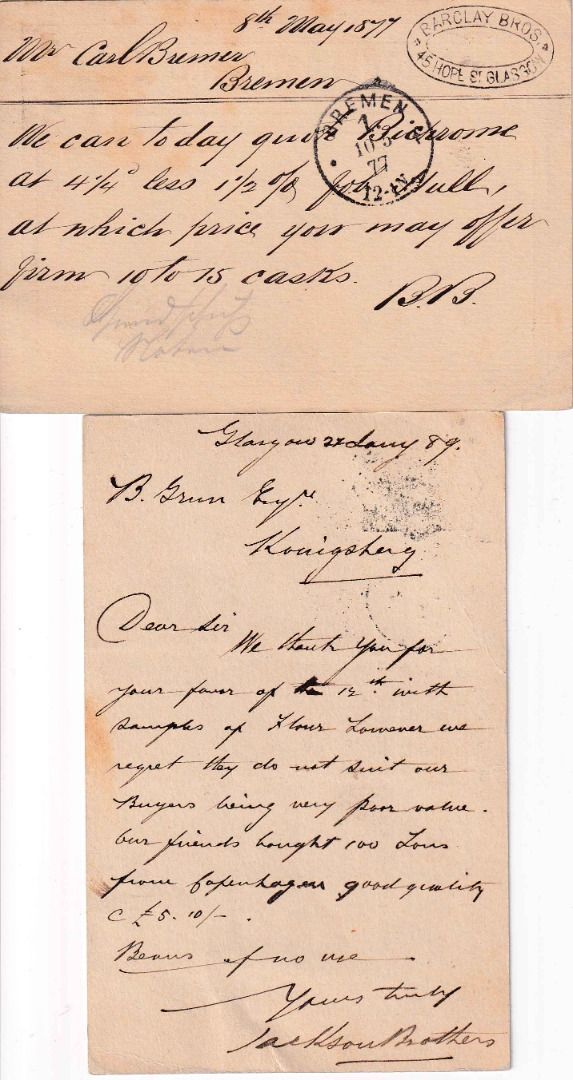 8th May 1877
BARCLAY BROS.
45 HOPE ST GLASGOW
Mr Carl Bremer
Bremen
BREMEN
10 5
77
12-1N
We can to day quote Bichrome
at 4¼d less 1½% fob Hull,
at which price you may offer
firm 10 to 15 casks.
B.B.
Glasgow 22 Jany 89.
B. Grun Esqre
Konigsberg
Dear Sir
We thank you for
your favor of the 12th with
samples of Flour however we
regret they do not suit our
Buyers being very poor value.
Our friends bought 100 Tons
from Copenhagen good quality
c £5.10/- .
Beans of no use
Yours truly
Jackson Brothers